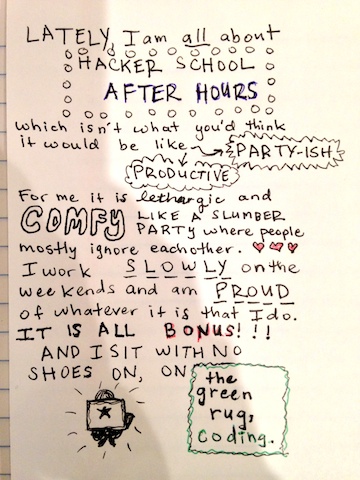 LATELY I am all about
HACKER SCHOOL
AFTER HOURS
which isn't what you'd think
it would be like → PARTY-ISH
PRODUCTIVE
For me it is lethargic and
COMFY LIKE A SLUMBER
PARTY where people
mostly ignore eachother.
I work SLOWLY on the
weekends and am PROUD
of whatever it is that I do.
IT IS ALL BONUS!!!
AND I SIT WITH NO
SHOES ON, ON
the
green
rug,
coding.